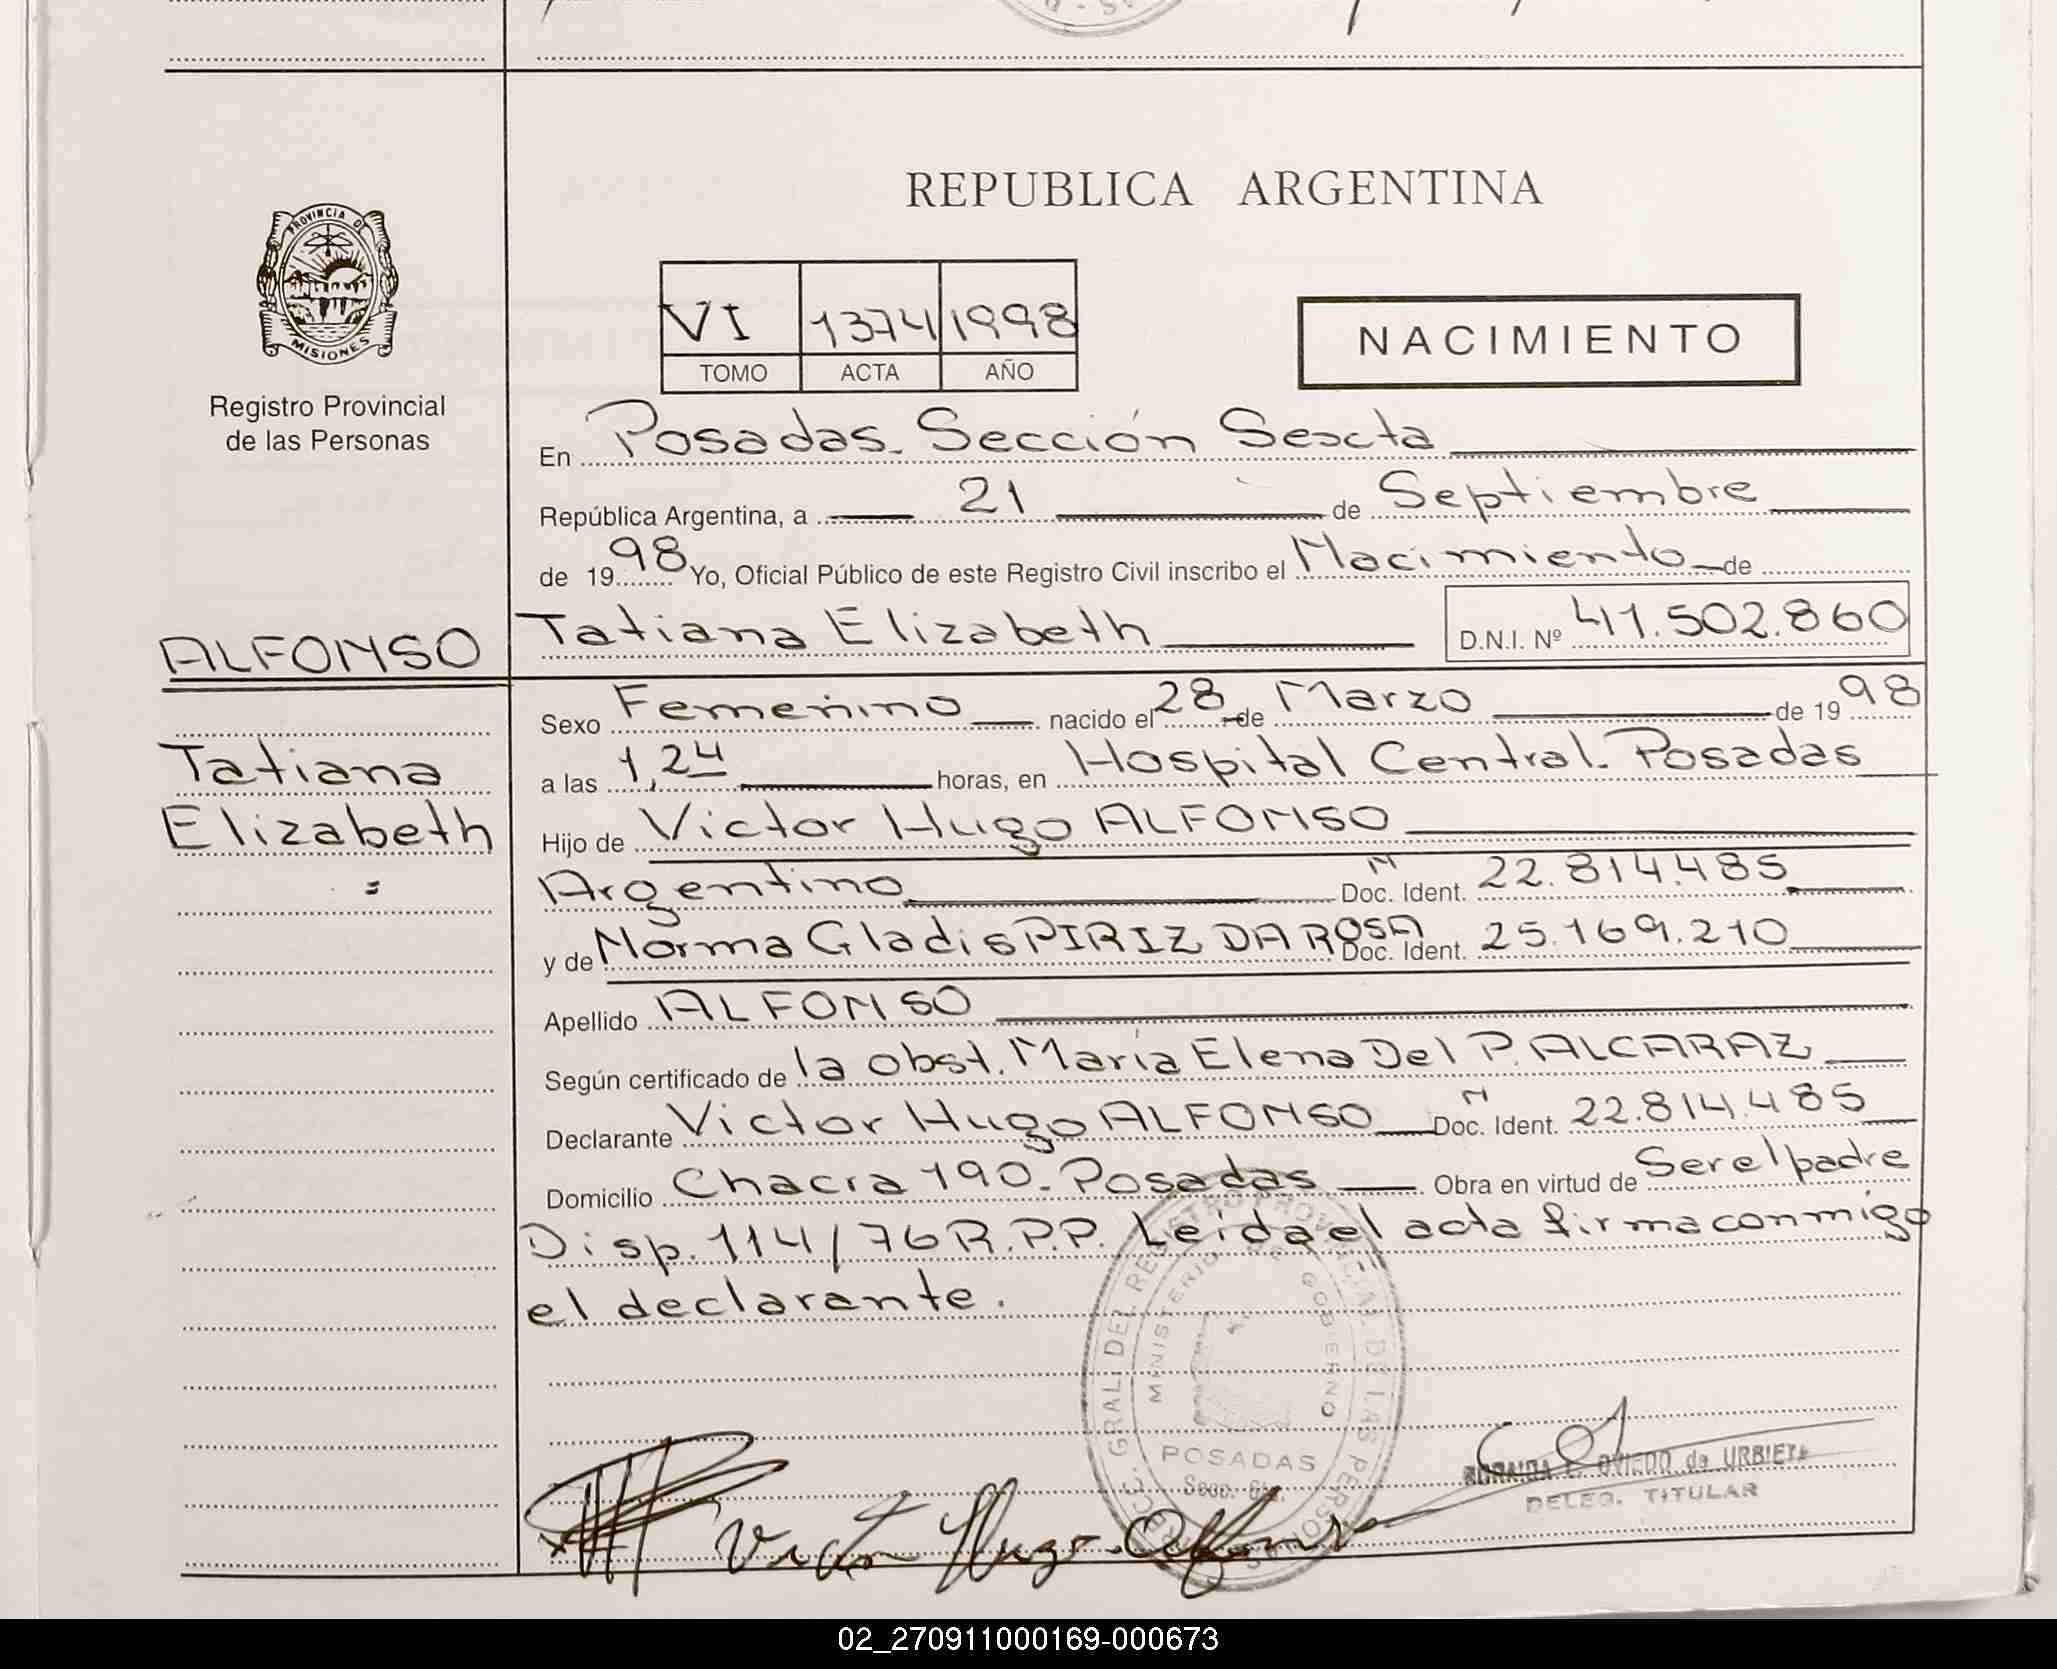 REPUBLICA ARGENTINA
PROVINCIA DE
MISIONES
Registro Provincial
de las Personas
VI 1374 1998
TOMO ACTA AÑO
NACIMIENTO
En Posadas. Sección Sexta
República Argentina, a 21 de Septiembre
de 1998 Yo, Oficial Público de este Registro Civil inscribo el Nacimiento de
Tatiana Elizabeth D.N.I. Nº 41.502.860
ALFONSO
Tatiana
Elizabeth
=
Sexo Femenino nacido el 28 de Marzo de 1998
a las 1,24 horas, en Hospital Central. Posadas
Hijo de Victor Hugo ALFONSO
Argentino N Doc. Ident. 22.814.485
y de Norma Gladis PIRIZ DA ROSA Doc. Ident. 25.169.210
Apellido ALFONSO
Según certificado de la Obst. María Elena Del P. ALCARAZ
Declarante Victor Hugo ALFONSO N Doc. Ident. 22.814.485
Domicilio Chacra 190. Posadas Obra en virtud de Ser el padre
Disp. 114/76 R.P.P. Leída el acta firma conmigo
el declarante.
GRAL. DEL REGISTRO PROVINCIAL DE LAS PERSONAS
MINISTERIO DE GOBIERNO
POSADAS
Secc. 6ta.
OVIEDO de URBIETA
DELEG. TITULAR
Victor Hugo Alfonso
02_270911000169-000673